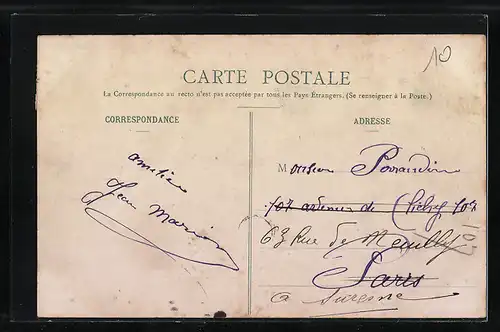 10
CARTE POSTALE
La Correspondance au recto n'est pas acceptée par tous les Pays Étrangers. (Se renseigner à la Poste.)
CORRESPONDANCE
amitiés
Jean
ADRESSE
Monsieur
107 avenue de Clichy 107
63 Rue de Neuilly
Paris
a Suresne
107